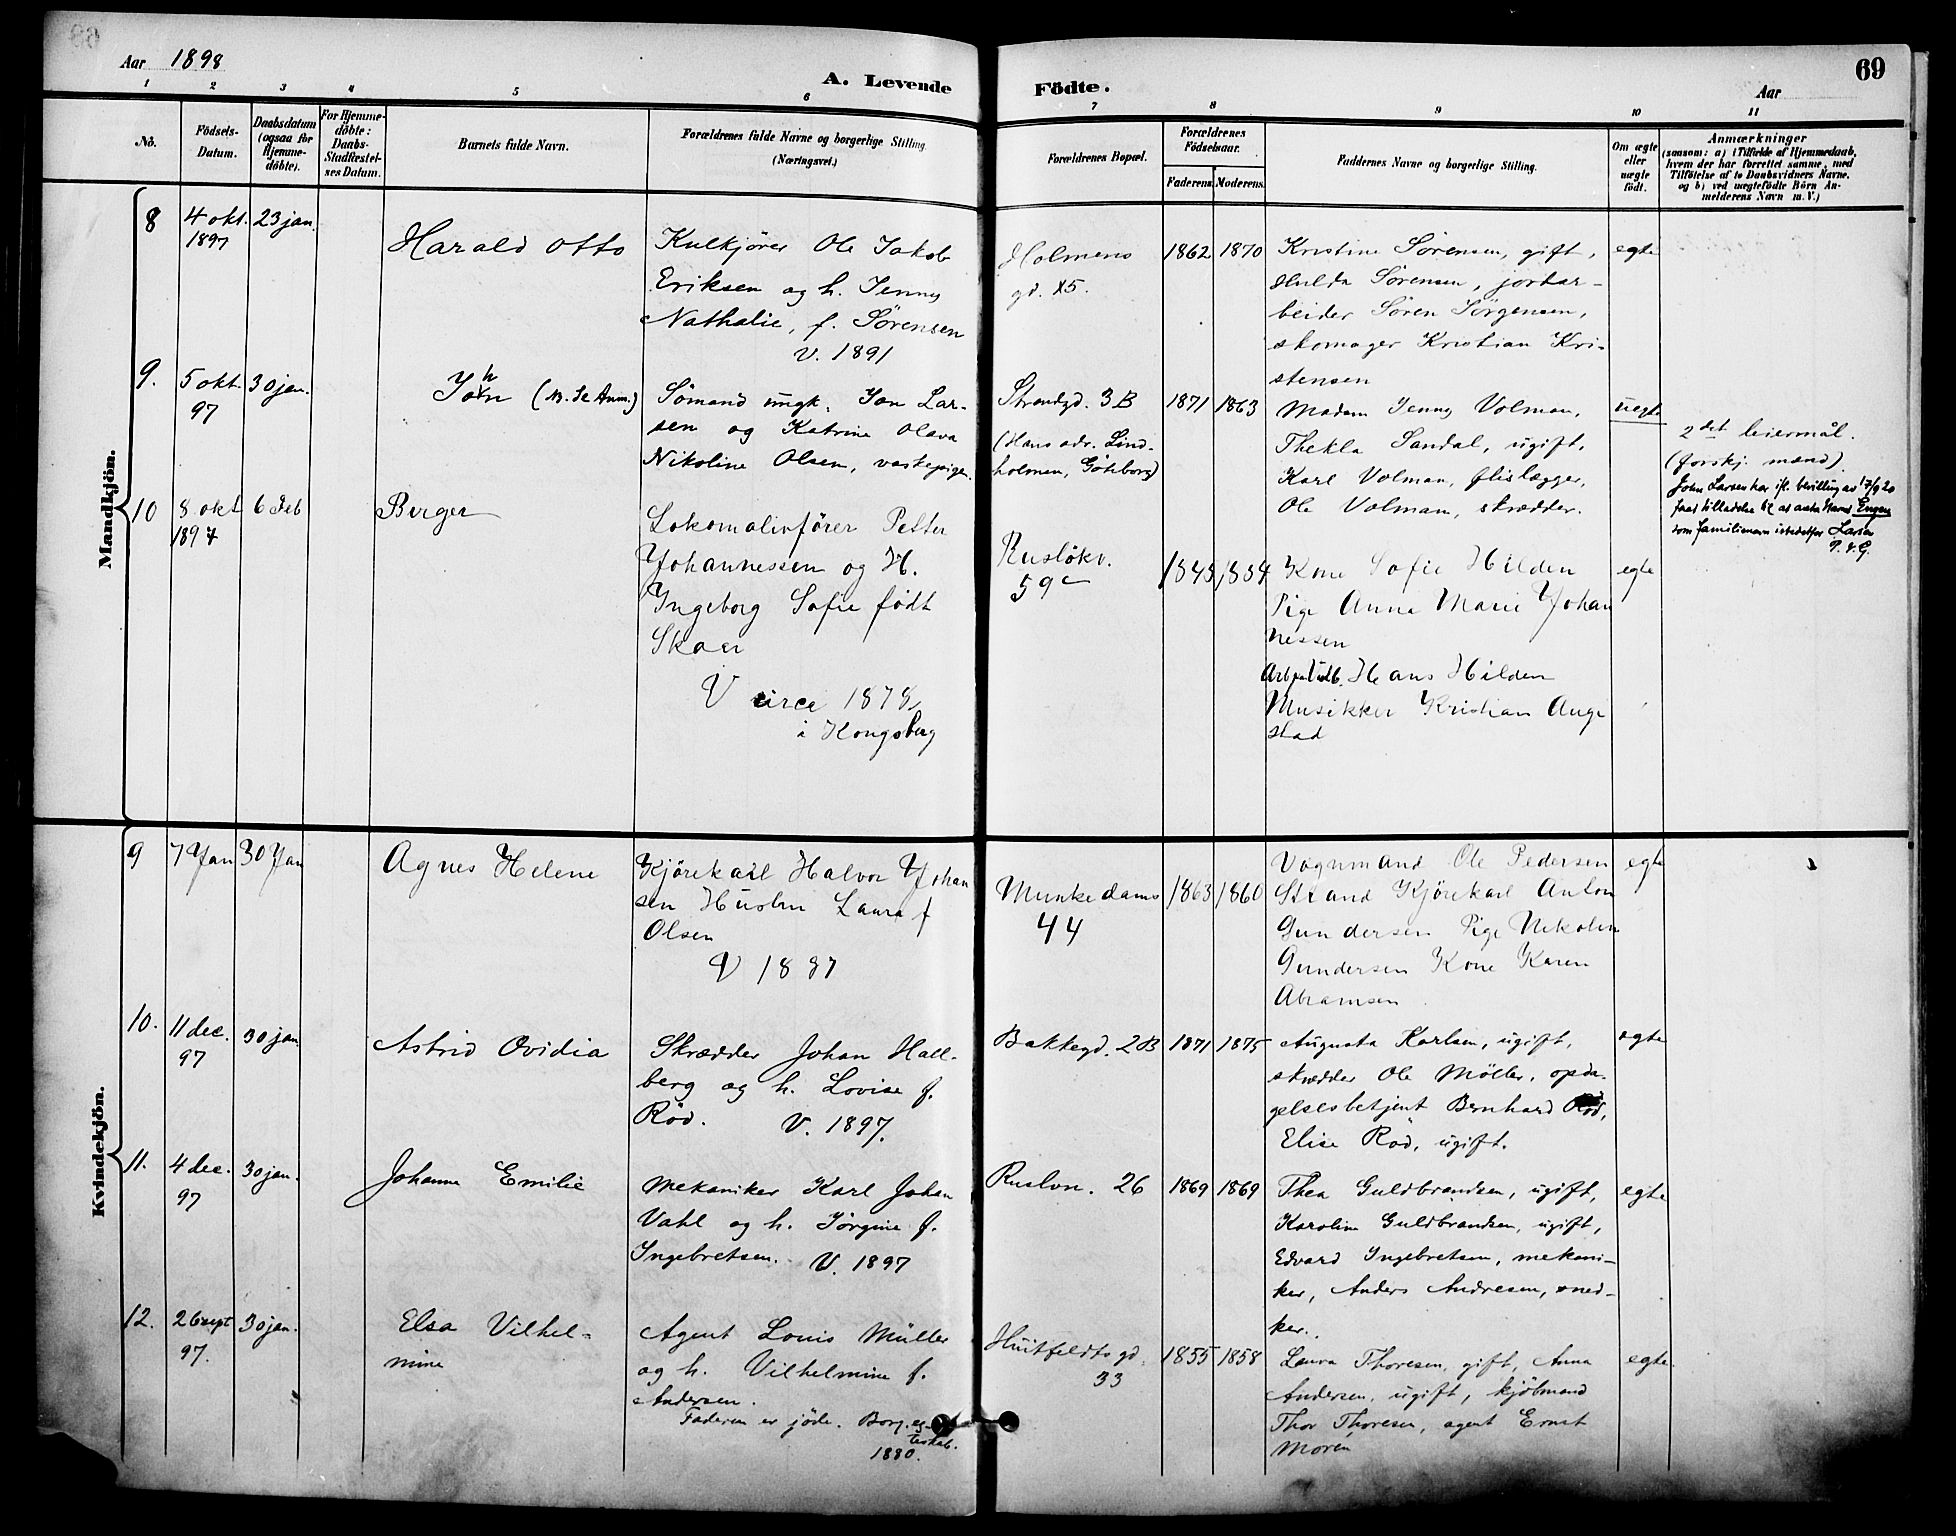 Aar 1898
A. Levende Födte.
69
Aar
1 2 3 4 5 6 7 8 9 10 11
No.
Födsels-
Datum.
Daabsdatum
(ogsaa for
Hjemme-
döbte).
For Hjemme-
döbte:
Daabs-
Stadfæstel-
ses Datum.
Barnets fulde Navn.
Forældrenes fulde Navne og borgerlige Stilling
(Næringsvei.)
Forældrenes Bopæl.
Forældrenes
Födselsaar.
Faderens Moderens
Faddernes Navne og borgerlige Stilling.
Om ægte
eller
uægte
födt.
Anmærkninger
(saasom: a) i Tilfælde af Hjemmedaab,
hvem der har forrettet samme, med
Tilföielse af to Daabsvidners Navne.
og b) ved uægtefödte Börn An-
melderens Navn m. V.)
Mandkjön.
8
4 okt.
1897
23 jan.
Harald Otto
Kulkjörer Ole Jakob
Eriksen og h. Jenny
Nathalie, f. Sörensen
V. 1891
Holmens
gd. 15.
1862 1870
Kristine Sörensen, gift,
Hulda Sörensen, jordar-
beider Sören Jörgensen,
skomager Kristian Kri-
stensen
egte
9.
5 okt.
97
30 jan.
John (N. Se Anm.)
Sömand ungk. Jon Lar-
sen og Katrine Olava
Nikoline Olsen, vaskepige.
Strandgd. 3B
(Hans adr. Lind-
holmen, Göteborg)
1871 1863
Madam Jenny Volman,
Thekla Sandal, ugift,
Karl Volman, flislægger,
Ole Volman, skrædder.
uegte
2det leiermål.
(forskj. mænd)
John Larsen har ifl. bevilling av 17/9 20
faat tilladelse til at anta navnet Engen
som familienavn istedetfor Larsen
P. v. G.
10
8 okt
1897
6 Feb
Birger
Lokomotivförer Petter
Johannessen og H.
Ingeborg Sofie födt
Skaar
V circa 1878
i Kongsberg
Ruslökv.
59c
1843 1854
Kone Sofie Hilden
Pige Anna Marie Johan
nessen
Hans Hilden
Musikker Kristian Auge
stad
egte
Kvindekjön.
9
7 Jan
30 Jan
Agnes Helene
Kjörekarl Halvor Johan
sen Hustru Laura f
Olsen
V 1887
Munkedams
44
1863 1860
Vognmand Ole Pedersen
Strand Kjörekarl Anton
Gundersen Pige Nikolin
Gundersen Kone Karen
Abramsen
egte
10.
11 dec.
97
30 jan
Astrid Ovidia
Skrædder Johan Hall-
berg og h. Lovise f.
Röd. V. 1897.
Bakkegd. 2B
1871 1875
Augusta Karlsen, ugift,
skrædder Ole Möller, opda-
gelsesbetjent Bernhard Röd,
Elise Röd, ugift.
egte
11.
4 dec.
97
30 jan.
Johanne Emilie
Mekaniker Karl Johan
Vahl og h. Jörgine f.
Ingebretsen. V. 1897
Ruslvn. 26
1869 1869
Thea Guldbrandsen, ugift,
Karoline Guldbrandsen, ugift,
Edvard Ingebretsen, mekani-
ker, Anders Andresen, sned-
ker.
egte
12.
26 sept
97.
30 jan.
Elsa Vilhel-
mine
Agent Louis Müller
og h. Vilhelmine f.
Andersen.
Faderen er jöde. Borg. eg-
teskab.
1880.
Huitfeldts gd.
33
1855 1858
Laura Thoresen, gift, Anna
Andersen, ugift, kjöbmand
Thor Thoresen, agent Ernst
Morén
egte.